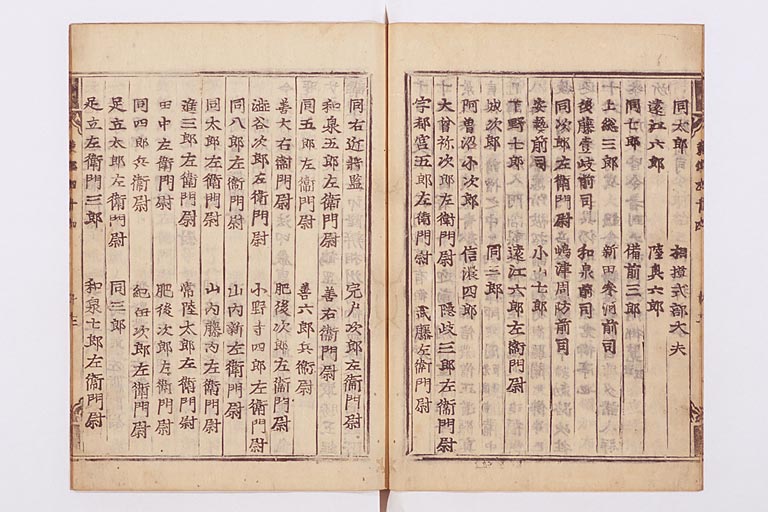 同太郎　相摸式部大夫
遠江六郎　陸奥六郎
同七郎　備前三郎
上総三郎　新田参河前司
後藤壹岐前司　和泉前司
同次郎左衛門尉　嶋津周防前司
安藝前司　小山七郎
下野七郎　遠江六郎左衛門尉
城次郎　同三郎
阿曽沼小次郎　信濃四郎
大曽祢次郎左衛門尉　隠岐三郎左衛門尉
宇都宮五郎左衛門尉　武藤左衛門尉
同右近将監　完戸次郎左衛門尉
和泉五郎左衛門尉　善右衛門尉
同五郎左衛門尉　善六郎兵衛尉
善太右衛門尉　肥後次郎左衛門尉
澁谷次郎左衛門尉　小野寺四郎左衛門尉
同八郎左衛門尉　山内新左衛門尉
同太郎左衛門尉　山内藤内左衛門尉
進三郎左衛門尉　常陸太郎左衛門尉
田中左衛門尉　肥後次郎左衛門尉
同四郎兵衛尉　紀伊次郎左衛門尉
足立太郎左衛門尉　同三郎
足立左衛門三郎　和泉七郎左衛門尉